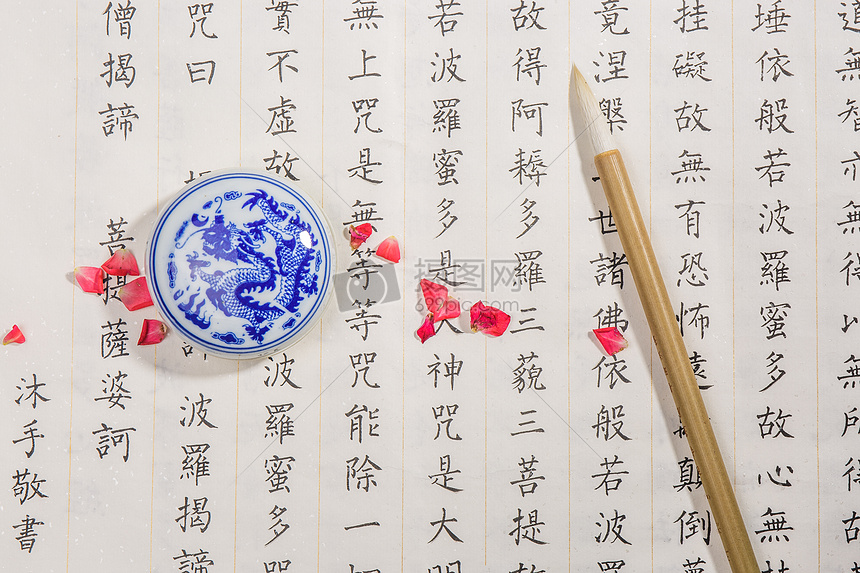 道無智亦無得以無所得故
埵依般若波羅蜜多故心無
挂礙故無有恐怖遠顛倒夢
竟涅槃三世諸佛依般若波羅
故得阿耨多羅三藐三菩提故
若波羅蜜多是大神咒是大明
無上咒是無等等咒能除一切
實不虛故波羅蜜多咒
咒曰波羅揭諦
僧揭諦 菩提薩婆訶
沐手敬書
摄图网
699pic.com